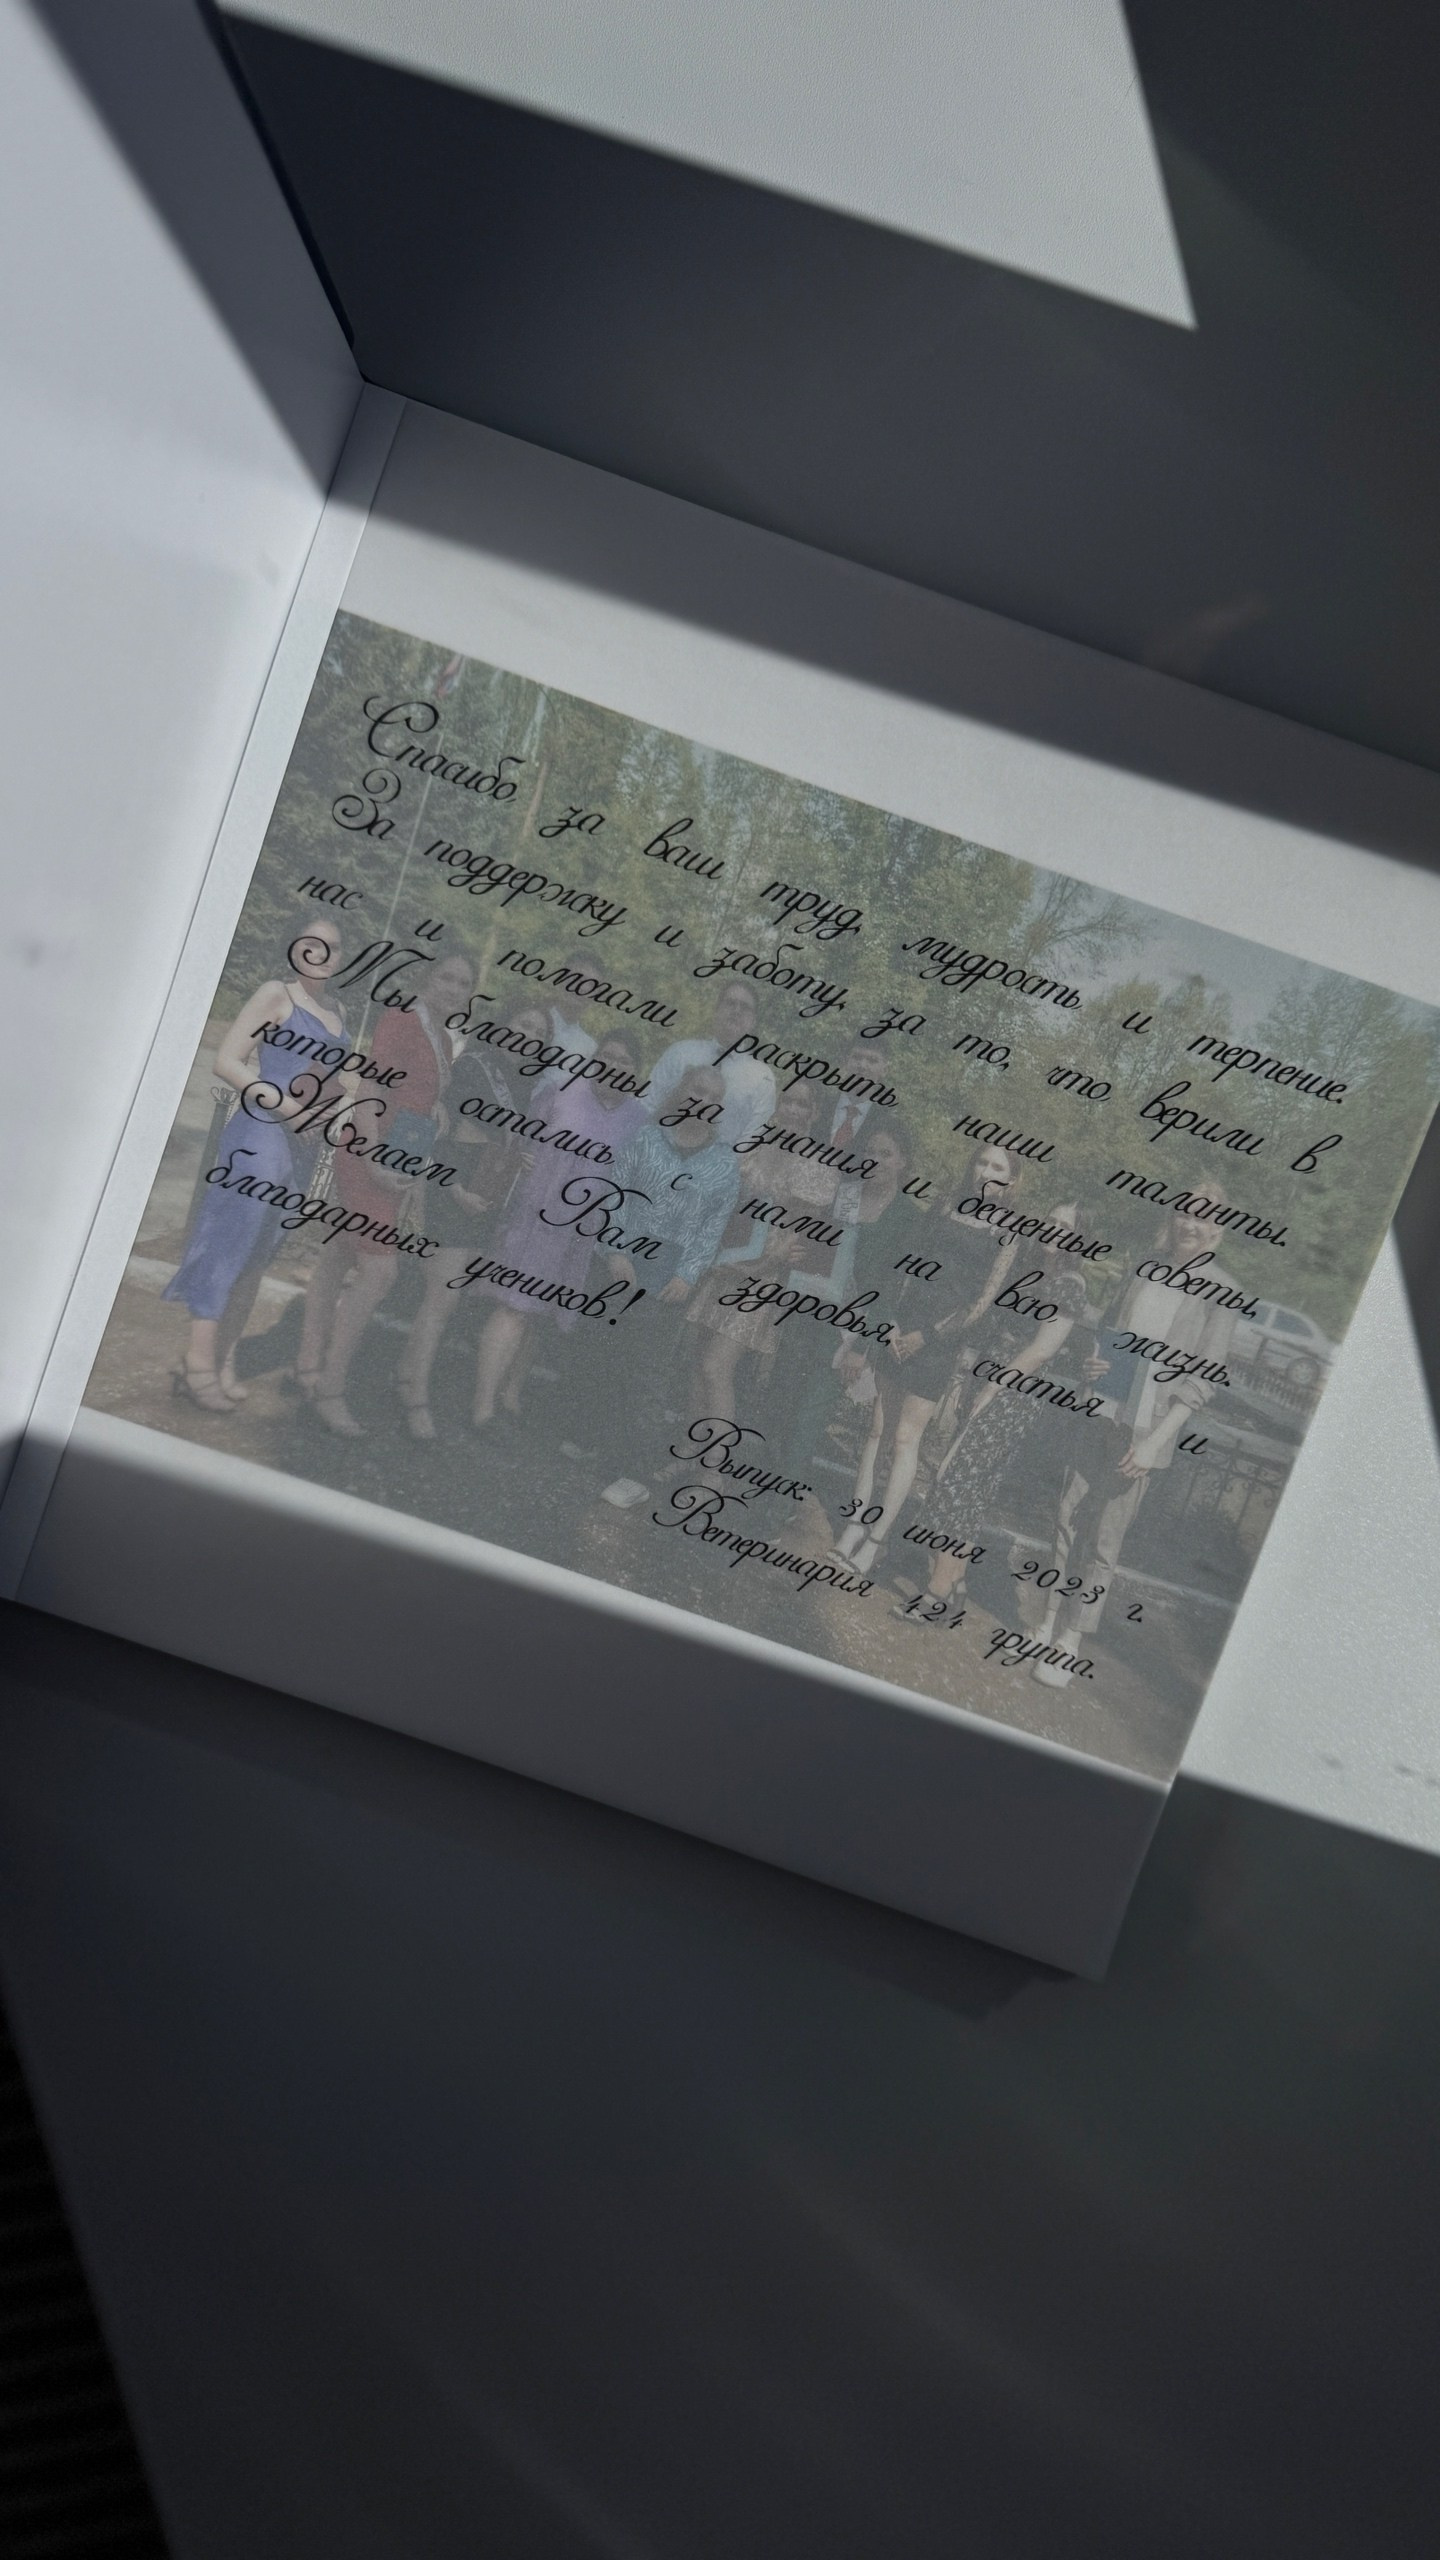 Спасибо, за ваш труд, мудрость и терпение.
За поддержку и заботу, за то, что верили в
нас и помогали раскрыть наши таланты.
Мы благодарны за знания и бесценные советы,
которые остались с нами на всю жизнь.
Желаем Вам здоровья, счастья и
благодарных учеников!
Выпуск: 30 июня 2023 г.
Ветеринария 424 группа.